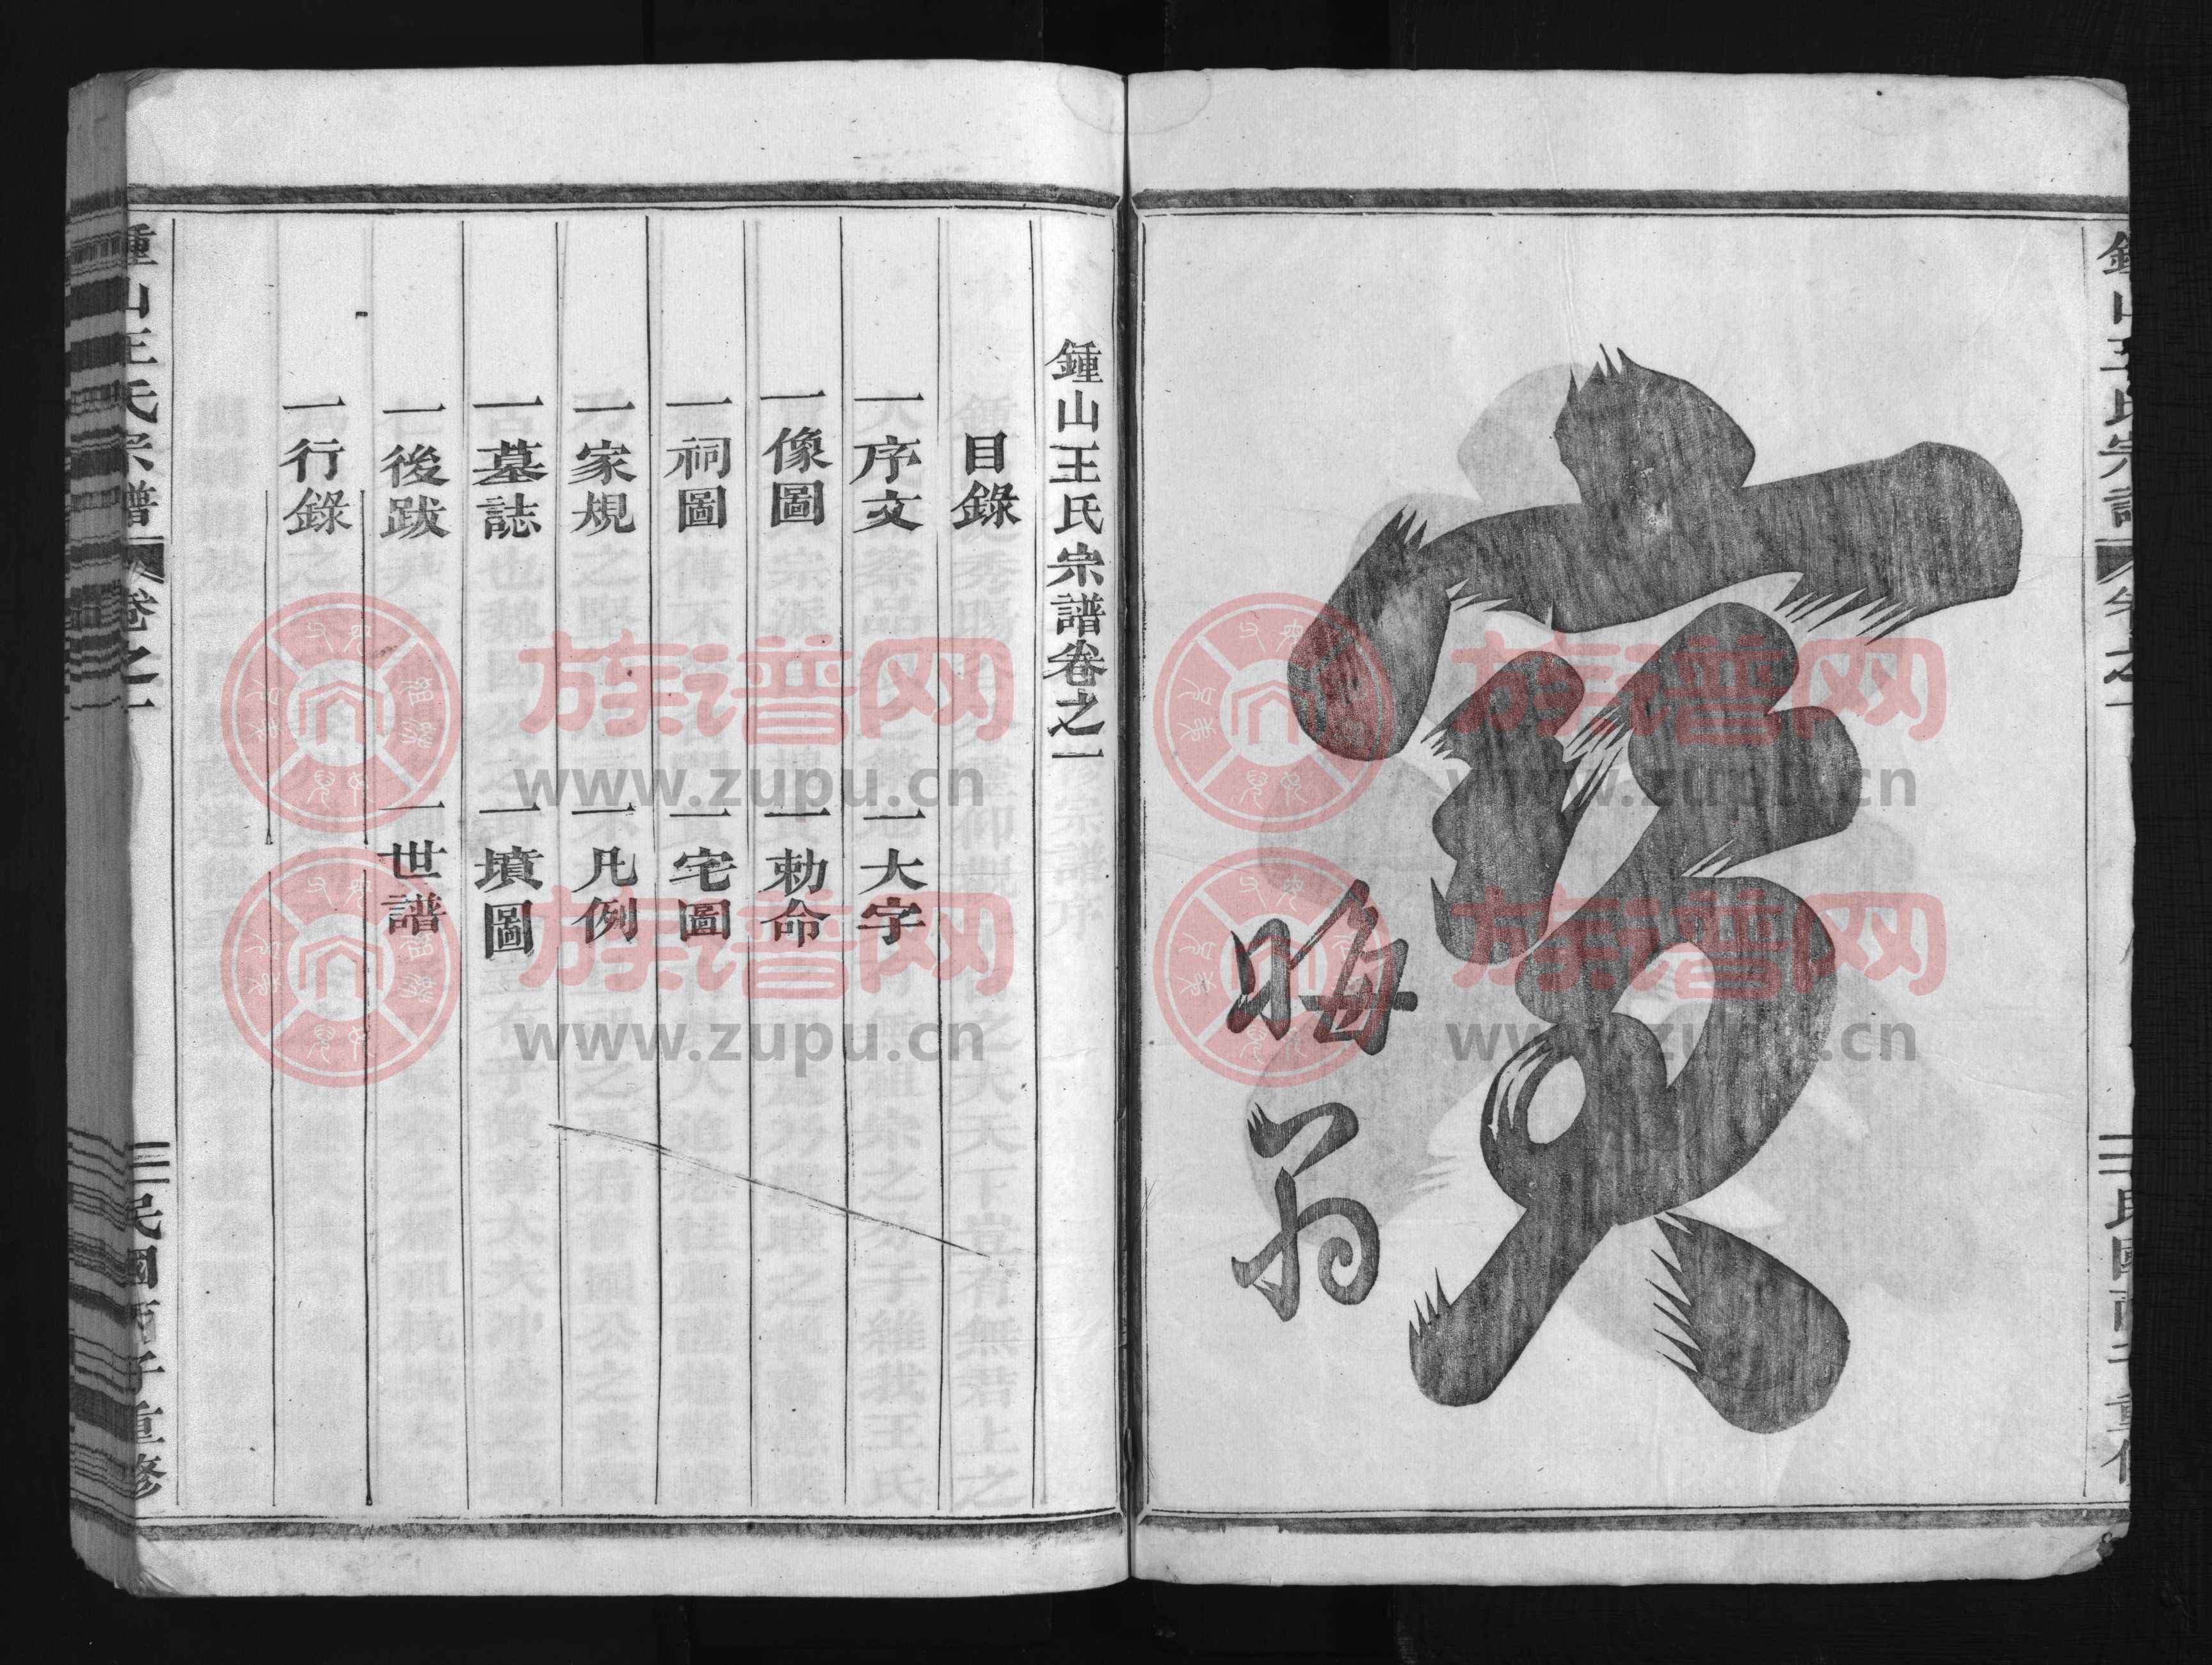 寶
晦翁
鍾山王氏宗譜卷之一
目錄
一序文 一大字
一像圖 一勅命
一祠圖 一宅圖
一家規 一凡例
一墓誌 一墳圖
一後跋 一世譜
一行錄
鍾山王氏宗譜 卷之一 民國丙子重修
族谱网
www.zupu.cn
族谱网
www.zupu.cn
族谱网
www.zupu.cn
族谱网
www.zupu.cn